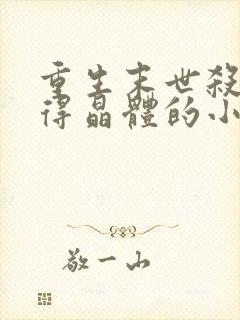 重生末世殺
得晶體的小
敬一山